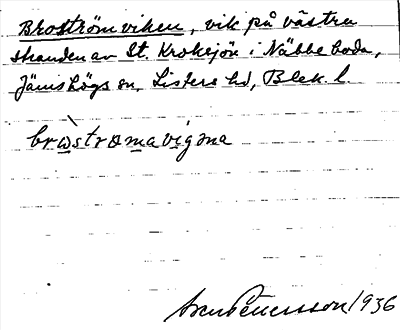 Broströmviken, vik på västra
stranden av St. Kroksjön i Näbbeboda,
Jämshögs sn, Listers hd, Blek. l.
bròströmavigəna
Sven Pettersson 1936